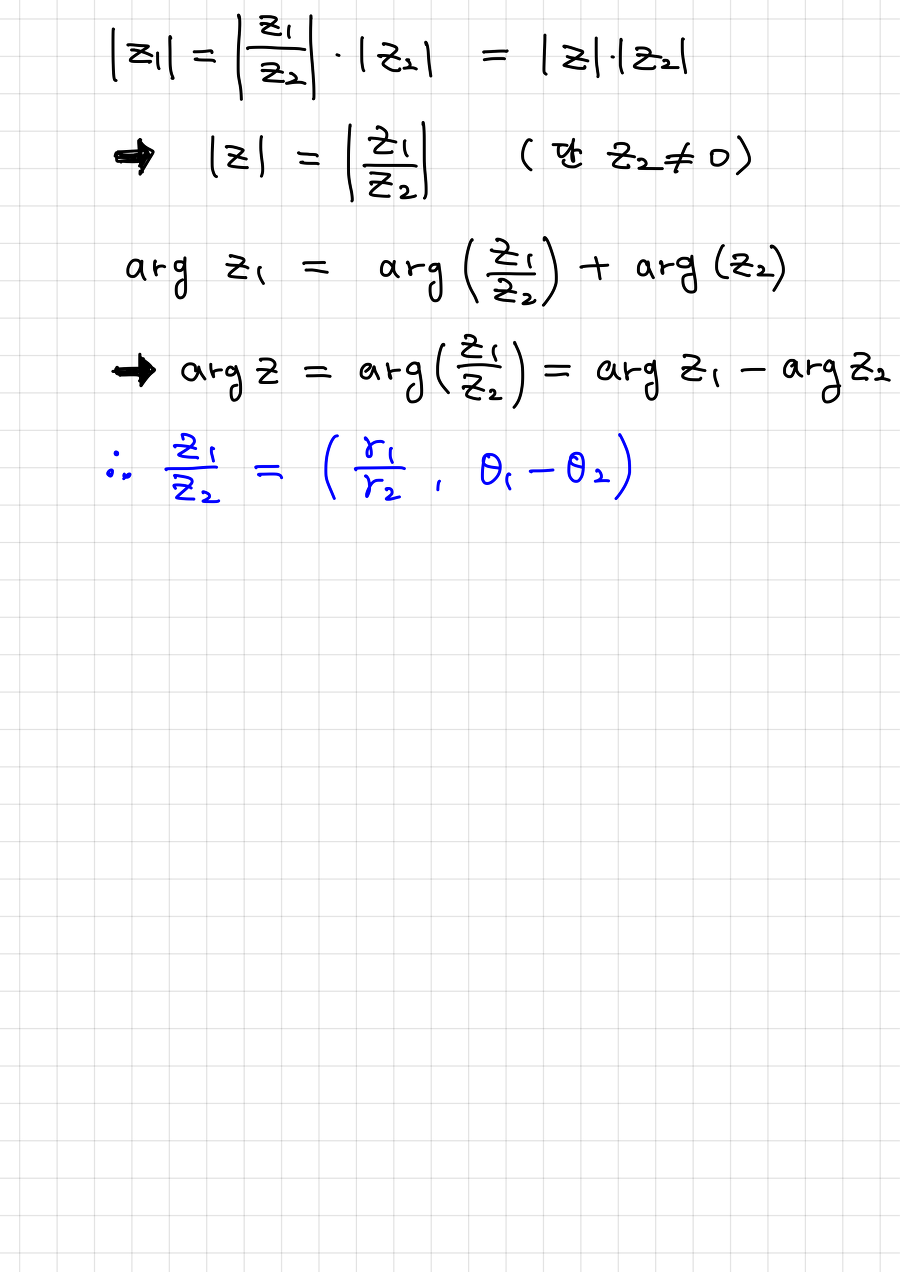 |z₁| = |z₁/z₂| · |z₂| = |z|·|z₂|
➡ |z| = |z₁/z₂| (단 z₂ ≠ 0)
arg z₁ = arg(z₁/z₂) + arg(z₂)
➡ arg z = arg(z₁/z₂) = arg z₁ − arg z₂
∴ z₁/z₂ = (r₁/r₂, θ₁ − θ₂)